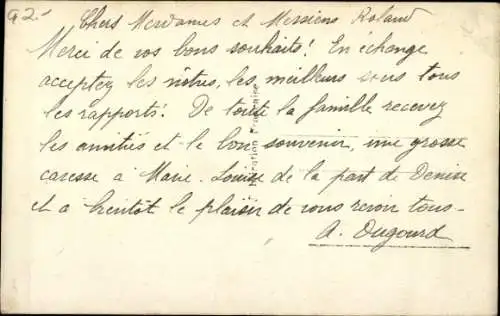 92.-
Chers Mesdames et Messieurs Roland
Merci de vos bons souhaits! En échange
acceptez les nôtres, les meilleurs sous tous
les rapports! De toute la famille recevez
les amitiés et le bon souvenir, une grosse
caresse à Marie-Louise de la part de Denise
et à bientôt le plaisir de vous revoir tous-
A. Dugourd